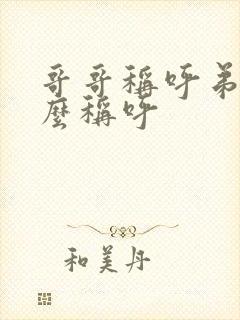 哥哥稱呼弟
麼稱呼
和美丹